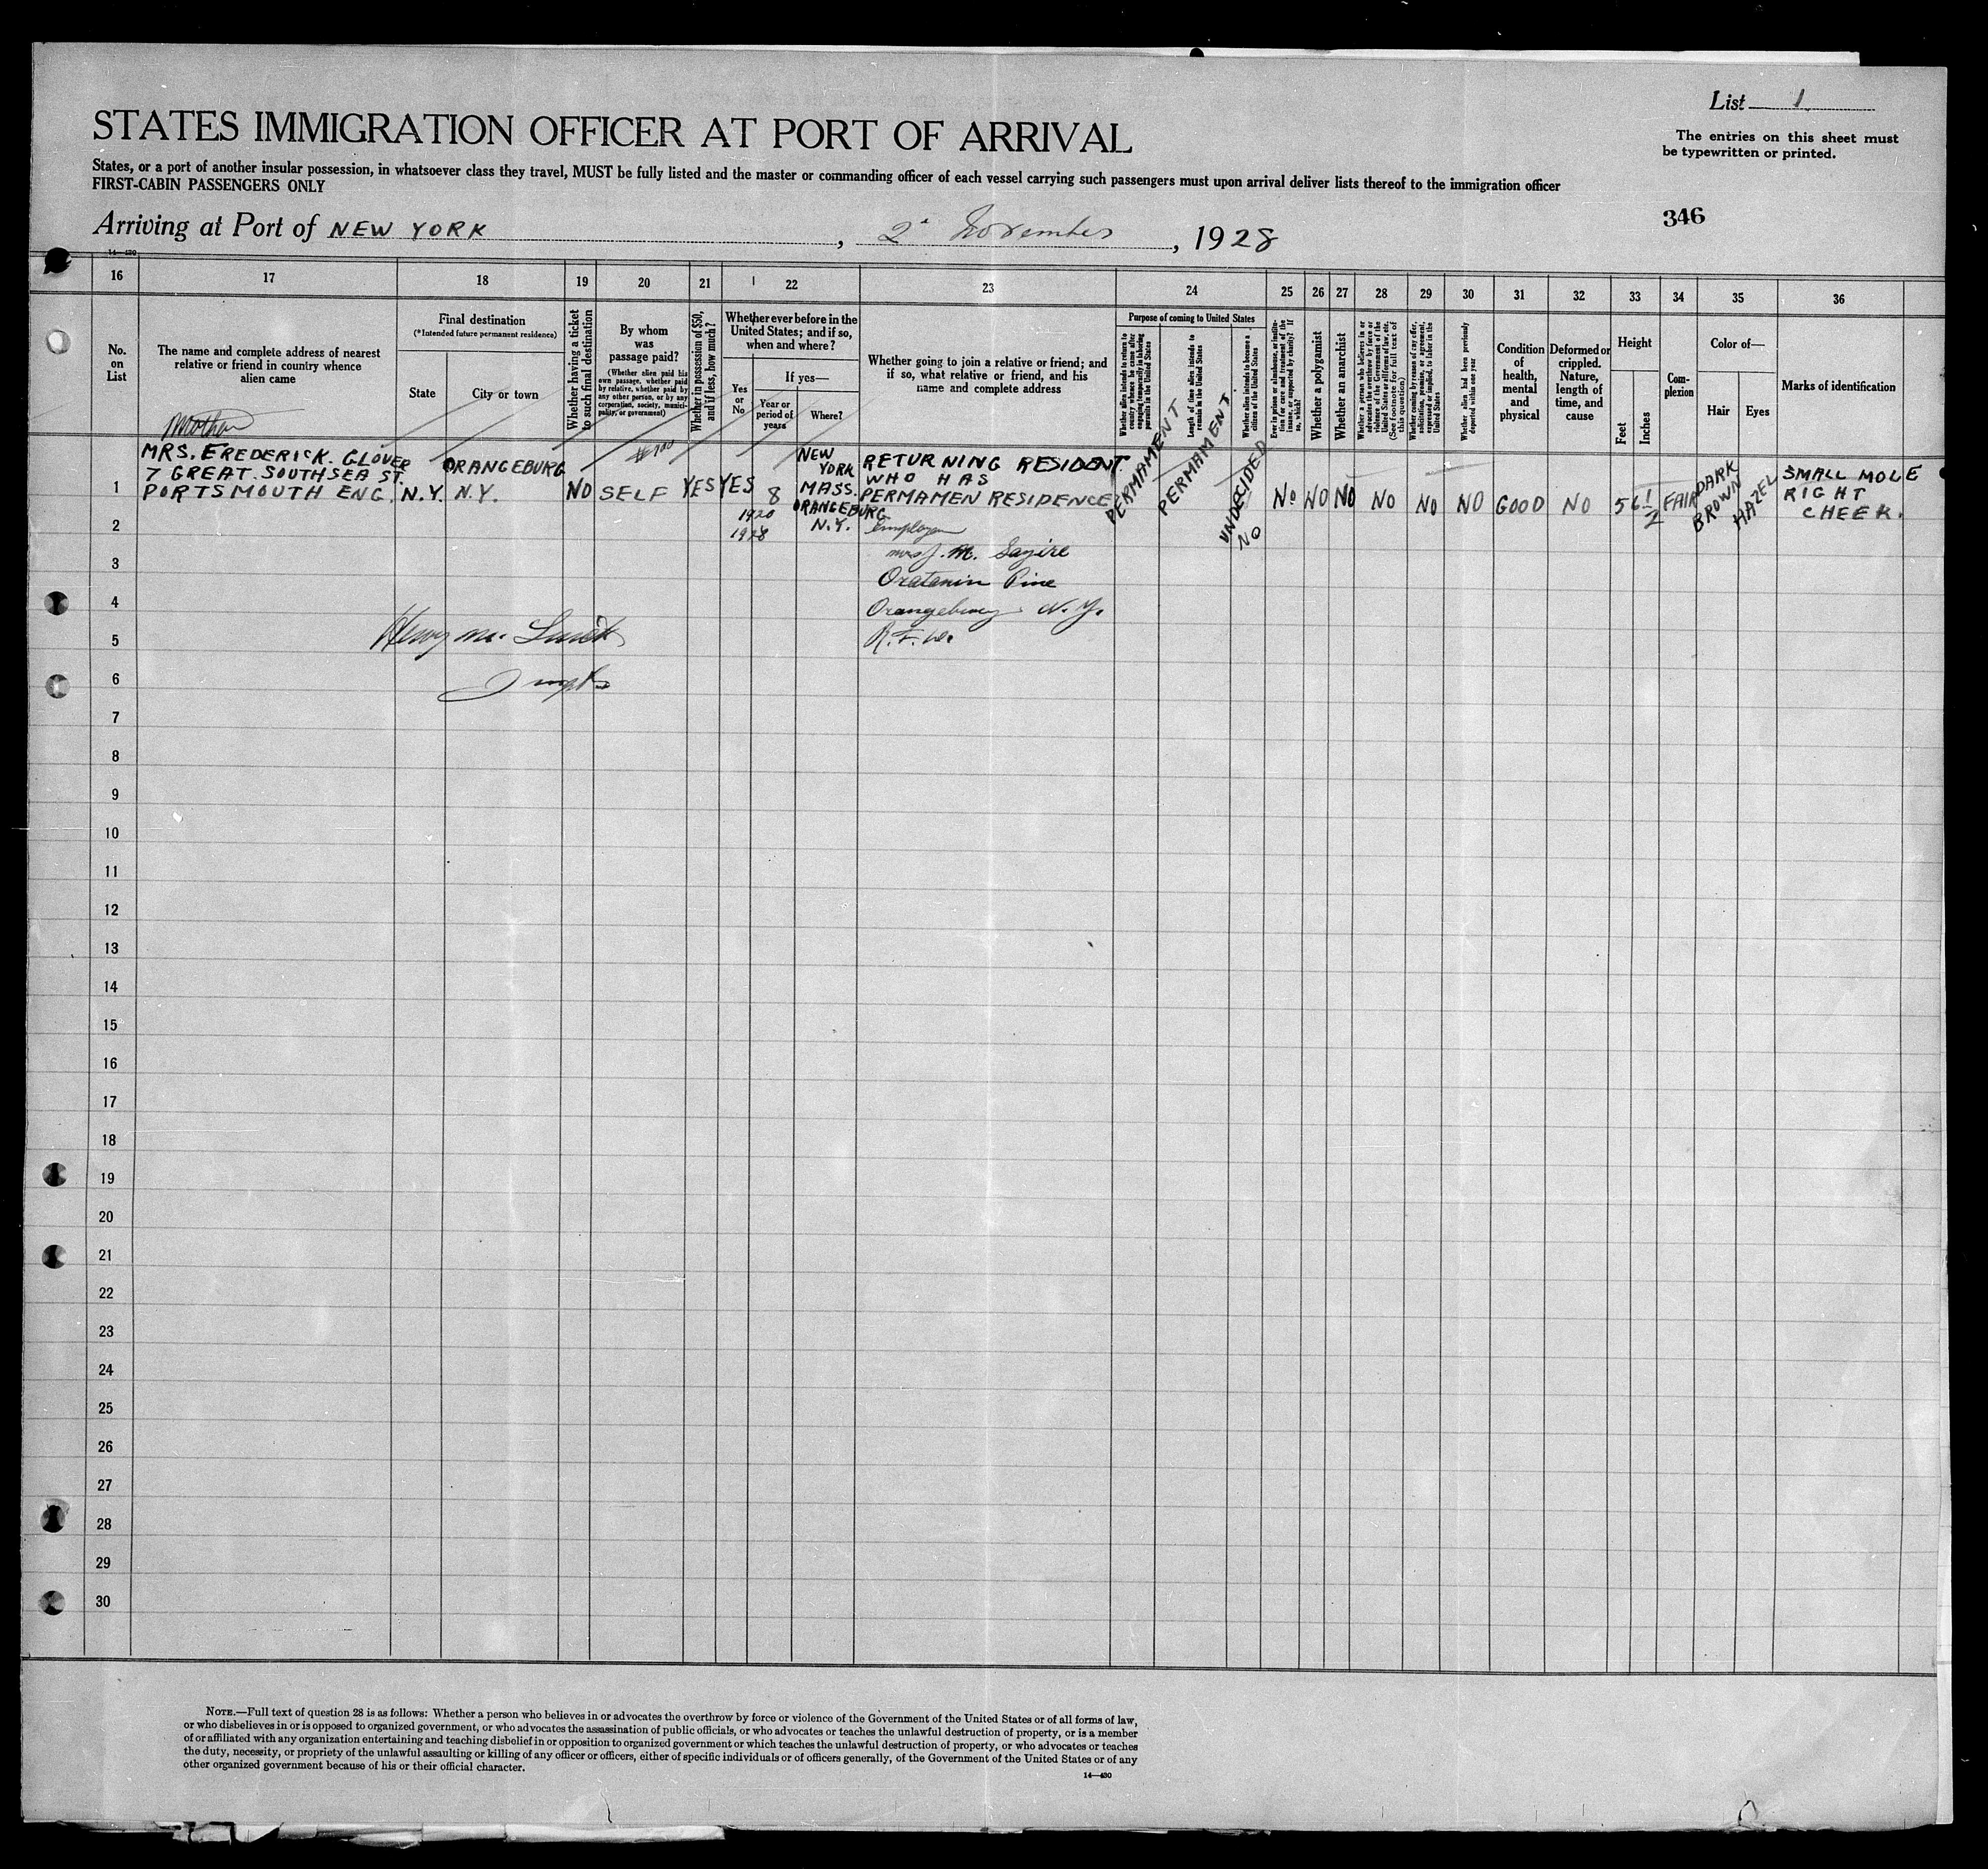 List 1
STATES IMMIGRATION OFFICER AT PORT OF ARRIVAL
The entries on this sheet must
be typewritten or printed.
States, or a port of another insular possession, in whatsoever class they travel, MUST be fully listed and the master or commanding officer of each vessel carrying such passengers must upon arrival deliver lists thereof to the immigration officer
FIRST-CABIN PASSENGERS ONLY
346
Arriving at Port of NEW YORK, 2d November, 1928
14-430
16 17 18 19 20 21 22 23 24 25 26 27 28 29 30 31 32 33 34 35 36
No.
on
List
The name and complete address of nearest
relative or friend in country whence
alien came
Final destination
(*Intended future permanent residence)
State
City or town
Whether having a ticket
to such final destination
By whom
was
passage paid?
(Whether alien paid his
own passage, whether paid
by relative, whether paid by
any other person, or by any
corporation, society, munici-
pality, or government)
Whether in possession of $50,
and if less, how much?
Whether ever before in the
United States; and if so,
when and where?
Yes
or
No
If yes—
Year or
period of
years
Where?
Whether going to join a relative or friend; and
if so, what relative or friend, and his
name and complete address
Purpose of coming to United States
Whether alien intends to return to
country whence he came after
engaging temporarily in laboring
pursuits in the United States
Length of time alien intends to
remain in the United States
Whether alien intends to become a
citizen of the United States
Ever in prison or almshouse, or institu-
tion for care and treatment of the
insane, or supported by charity? If
so, which?
Whether a polygamist
Whether an anarchist
Whether a person who believes in or
advocates the overthrow by force or
violence of the Government of the
United States or all forms of law, etc.
(See footnote for full text of
this question)
Whether coming by reason of any offer,
solicitation, promise, or agreement,
expressed or implied, to labor in the
United States
Whether alien had been previously
deported within one year
Condition
of
health,
mental
and
physical
Deformed or
crippled.
Nature,
length of
time, and
cause
Height
Feet
Inches
Com-
plexion
Color of—
Hair
Eyes
Marks of identification
Mother
MRS. FREDERICK. GLOVER
7 GREAT. SOUTHSEA ST.
PORTSMOUTH ENG.
N.Y.
ORANGEBURG
N.Y.
NO
SELF
YES
YES
8
1920
1928
NEW
YORK
MASS.
ORANGEBURG
N.Y.
RETURNING RESIDENT.
WHO HAS
PERMAMEN RESIDENCE
Employer
M.
Pine
Orangeburg N.Y.
PERMAMENT
PERMAMENT
UNDECIDED
NO
No
NO
NO
NO
NO
NO
GOOD
NO
5
6 1/2
FAIR
DARK
BROWN
HAZEL
SMALL MOLE
RIGHT
CHEEK.
Henry M.
1
2
3
4
5
6
7
8
9
10
11
12
13
14
15
16
17
18
19
20
21
22
23
24
25
26
27
28
29
30
NOTE.—Full text of question 28 is as follows: Whether a person who believes in or advocates the overthrow by force or violence of the Government of the United States or of all forms of law,
or who disbelieves in or is opposed to organized government, or who advocates the assassination of public officials, or who advocates or teaches the unlawful destruction of property, or is a member
of or affiliated with any organization entertaining and teaching disbelief in or opposition to organized government or which teaches the unlawful destruction of property, or who advocates or teaches
the duty, necessity, or propriety of the unlawful assaulting or killing of any officer or officers, either of specific individuals or of officers generally, of the Government of the United States or of any
other organized government because of his or their official character.
14—430